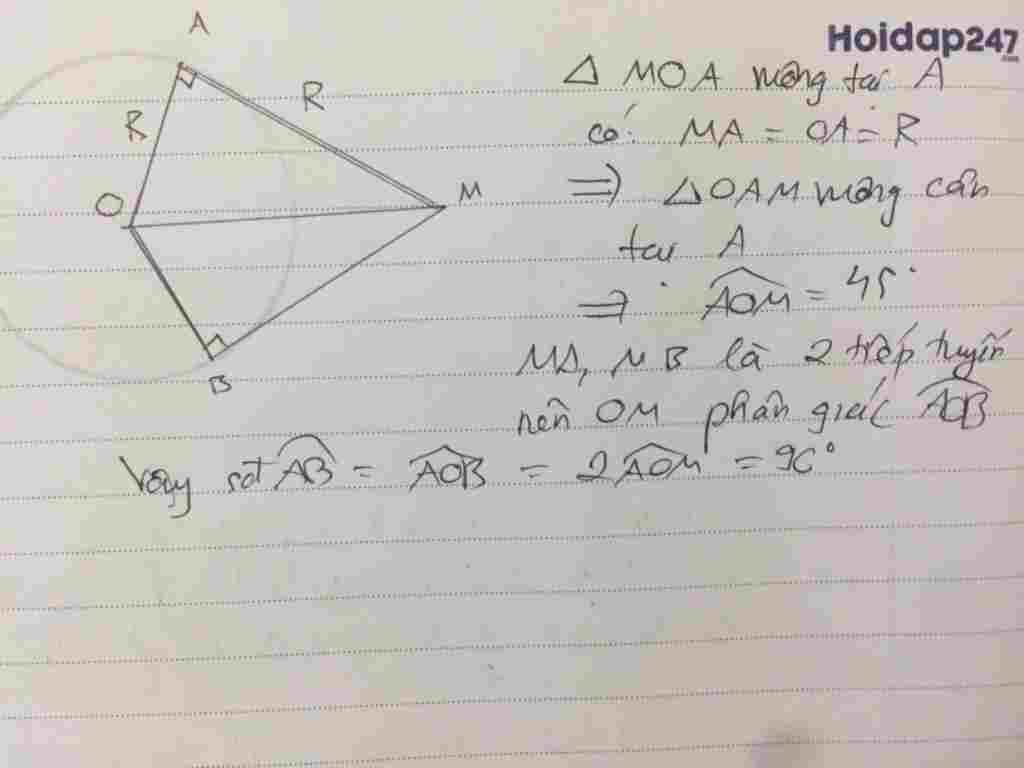 Hoidap247
.com
A
R
R
O
M
B
△ MOA vuông tại A
có: MA = OA = R
⇒ △OAM vuông cân
tại A
⇒ AOM = 45°
MA, MB là 2 tiếp tuyến
nên OM phân giác AOB
Vậy sđ AB = AOB = 2AOM = 90°